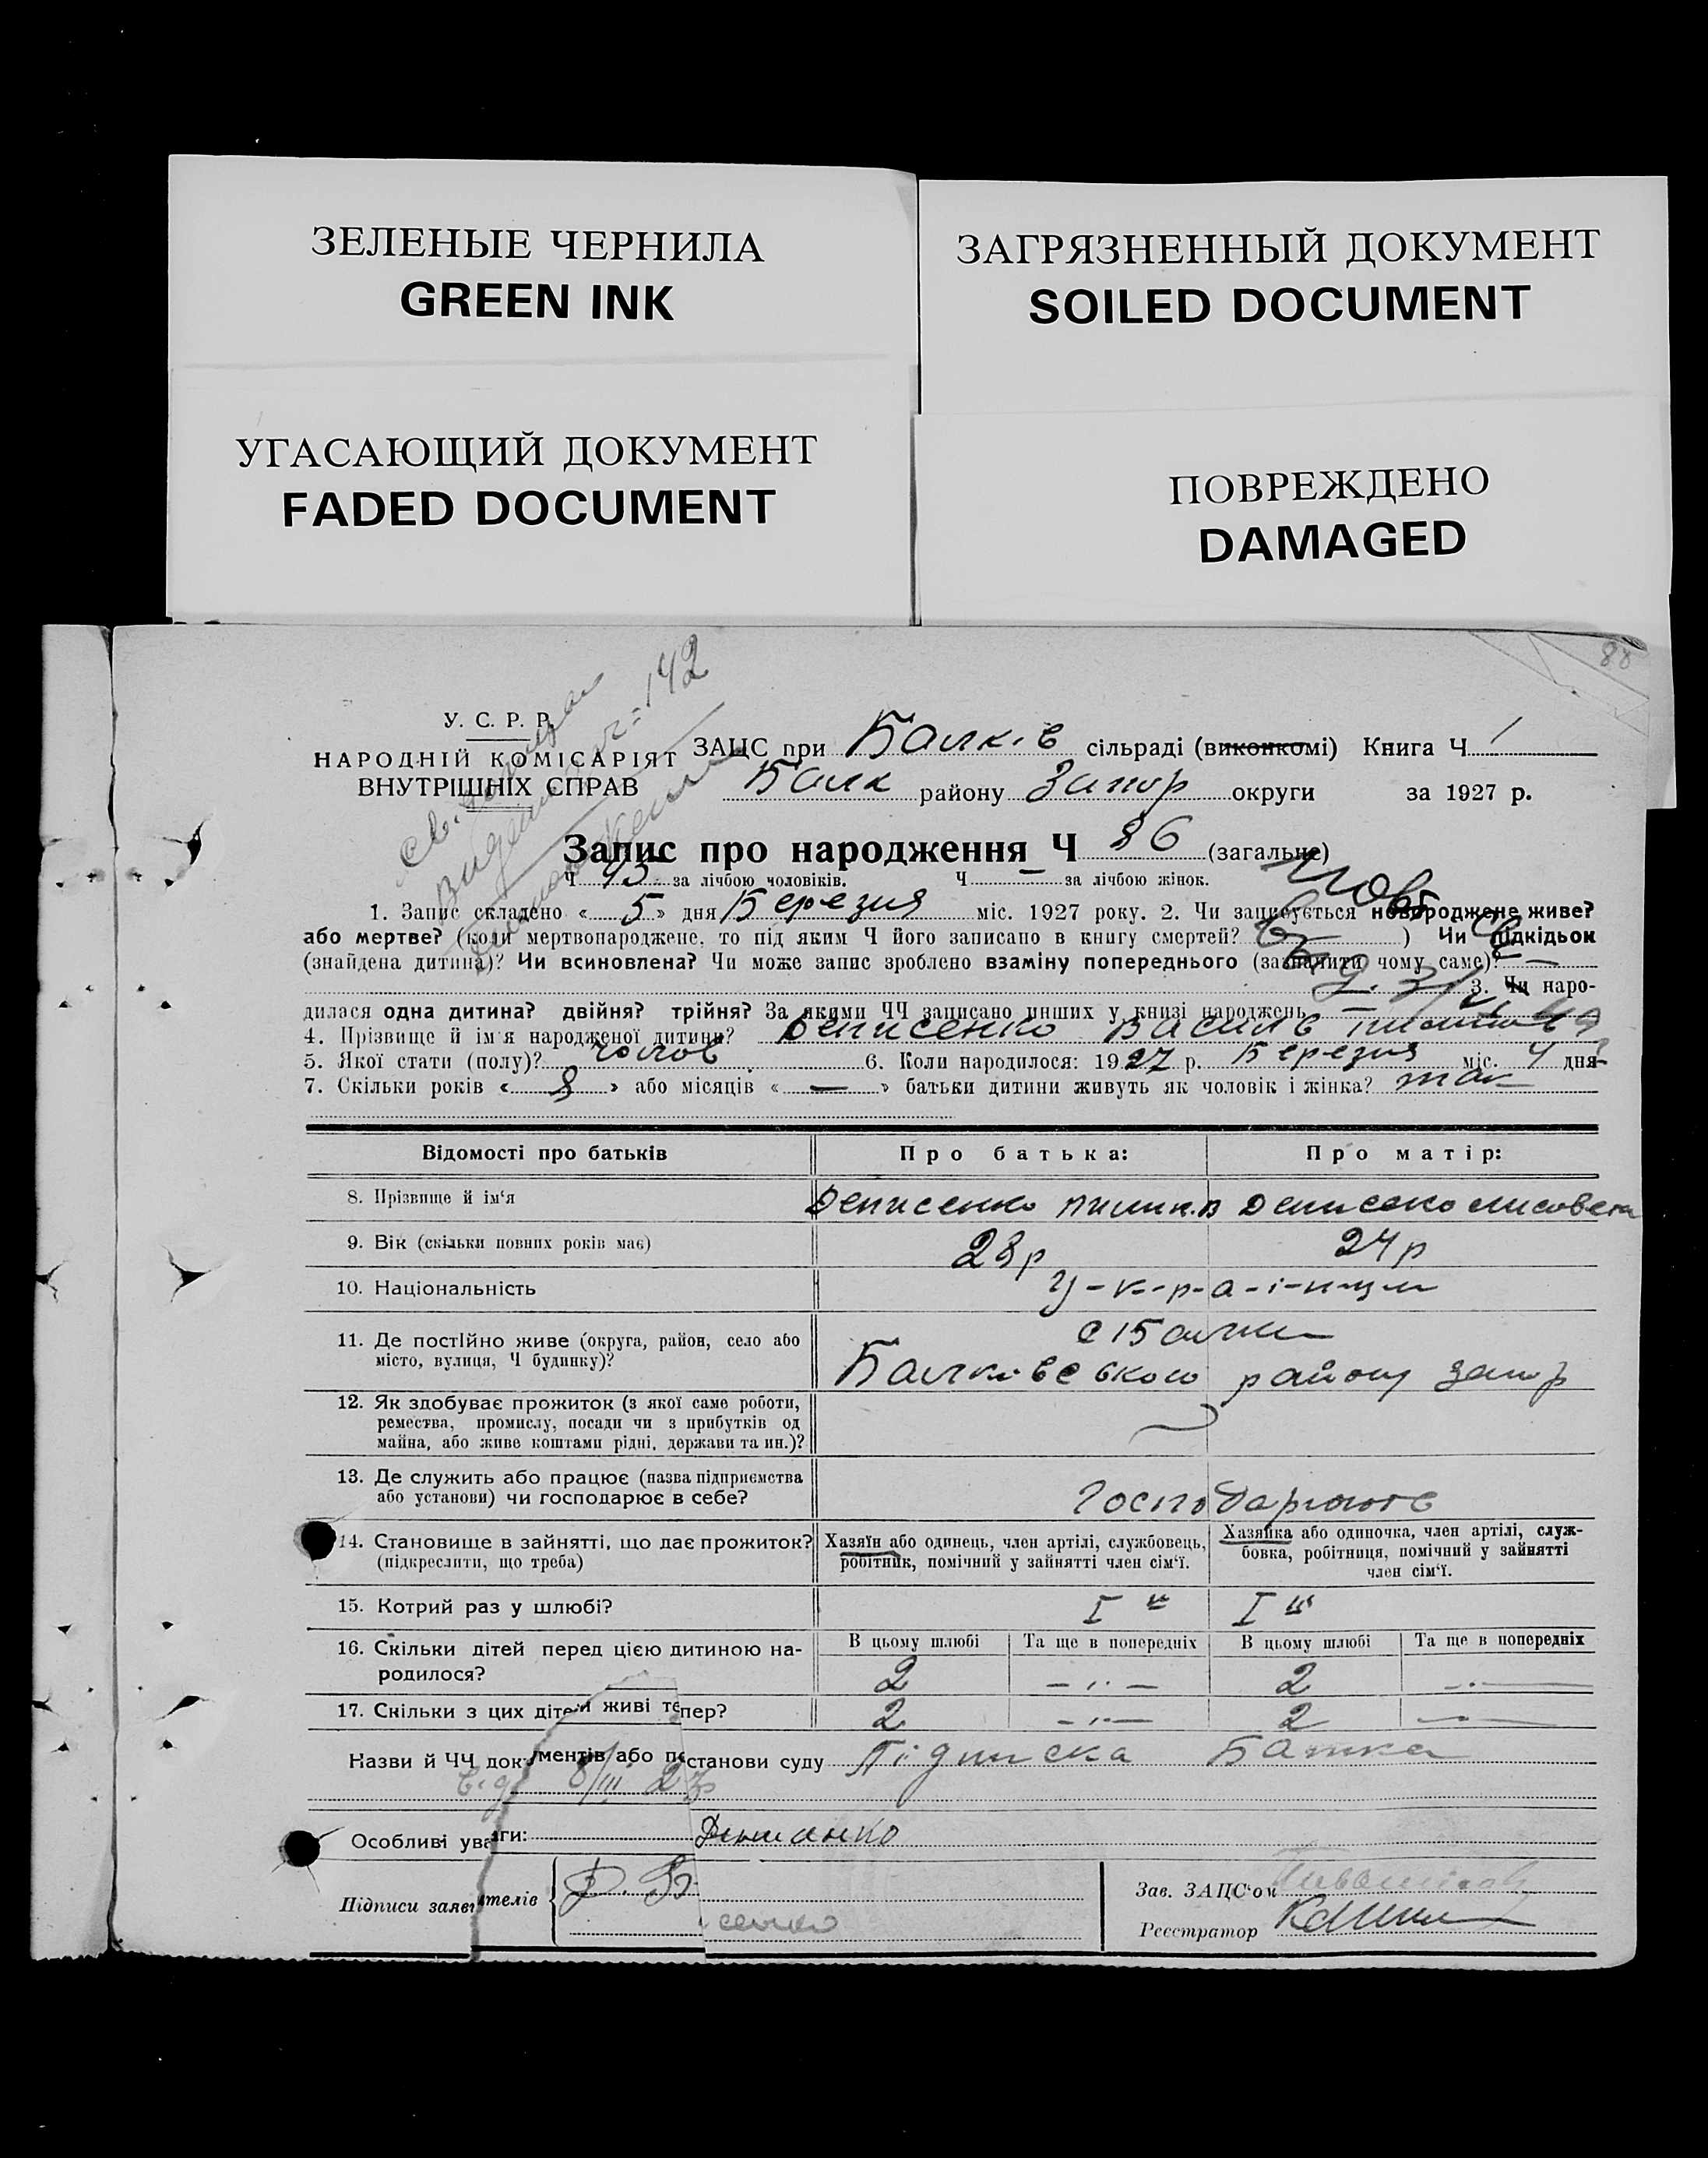 ЗЕЛЕНЫЕ ЧЕРНИЛА
GREEN INK
ЗАГРЯЗНЕННЫЙ ДОКУМЕНТ
SOILED DOCUMENT
УГАСАЮЩИЙ ДОКУМЕНТ
FADED DOCUMENT
ПОВРЕЖДЕНО
DAMAGED
88
142
У. С. Р. Р.
НАРОДНІЙ КОМІСАРІЯТ
ВНУТРІШНІХ СПРАВ
ЗАЦС при Балків сільраді (виконкомі) Книга Ч 1
Балк району Запор округи за 1927 р.
Запис про народження Ч 86 (загальне)
Ч 45 за лічбою чоловіків. Ч — за лічбою жінок.
1. Запис складено « 5 » дня Березня міс. 1927 року. 2. Чи записується новороджене живе?
або мертве? (коли мертвонароджене, то під яким Ч його записано в книгу смертей? ) Чи підкідьок
(знайдена дитина)? Чи всиновлена? Чи може запис зроблено взаміну попереднього (зазначити чому саме)? —
3. Чи наро-
дилася одна дитина? двійня? трійня? За якими ЧЧ записано инших у книзі народжень
4. Прізвище й ім'я народженої дитини? Денисенко Василь
5. Якої стати (полу)? чолов 6. Коли народилося: 1927 р. Березня міс. 4 дня
7. Скільки років « 8 » або місяців « — » батьки дитини живуть як чоловік і жінка? так
Відомості про батьків Про батька: Про матір:
8. Прізвище й ім'я Денисенко Денисеко Лисовета
9. Вік (скільки повних років має) 28р 24р
10. Національність У-к-р-а-ї-н-ци
11. Де постійно живе (округа, район, село або
місто, вулиця, Ч будинку)?
с Балки
Балківського району запор
12. Як здобуває прожиток (з якої саме роботи,
ремества, промислу, посади чи з прибутків од
майна, або живе коштами рідні, держави та ин.)?
13. Де служить або працює (назва підприємства
або установи) чи господарює в себе?
Господарюють
14. Становище в зайнятті, що дає прожиток?
(підкреслити, що треба)
Хазяїн або одинець, член артілі, службовець,
робітник, помічний у зайнятті член сім'ї.
Хазяйка або одиночка, член артілі, служ-
бовка, робітниця, помічний у зайнятті
член сім'ї.
15. Котрий раз у шлюбі? І й І й
16. Скільки дітей перед цією дитиною на-
родилося?
В цьому шлюбі Та ще в попередніх В цьому шлюбі Та ще в попередніх
2 — 2 —
17. Скільки з цих дітей живі тепер? 2 — 2 —
Назви й ЧЧ документів або постанови суду Підписка Батька
8/III
Особливі уваги:
Підписи заявителів
Зав. ЗАЦС'ом
Реєстратор